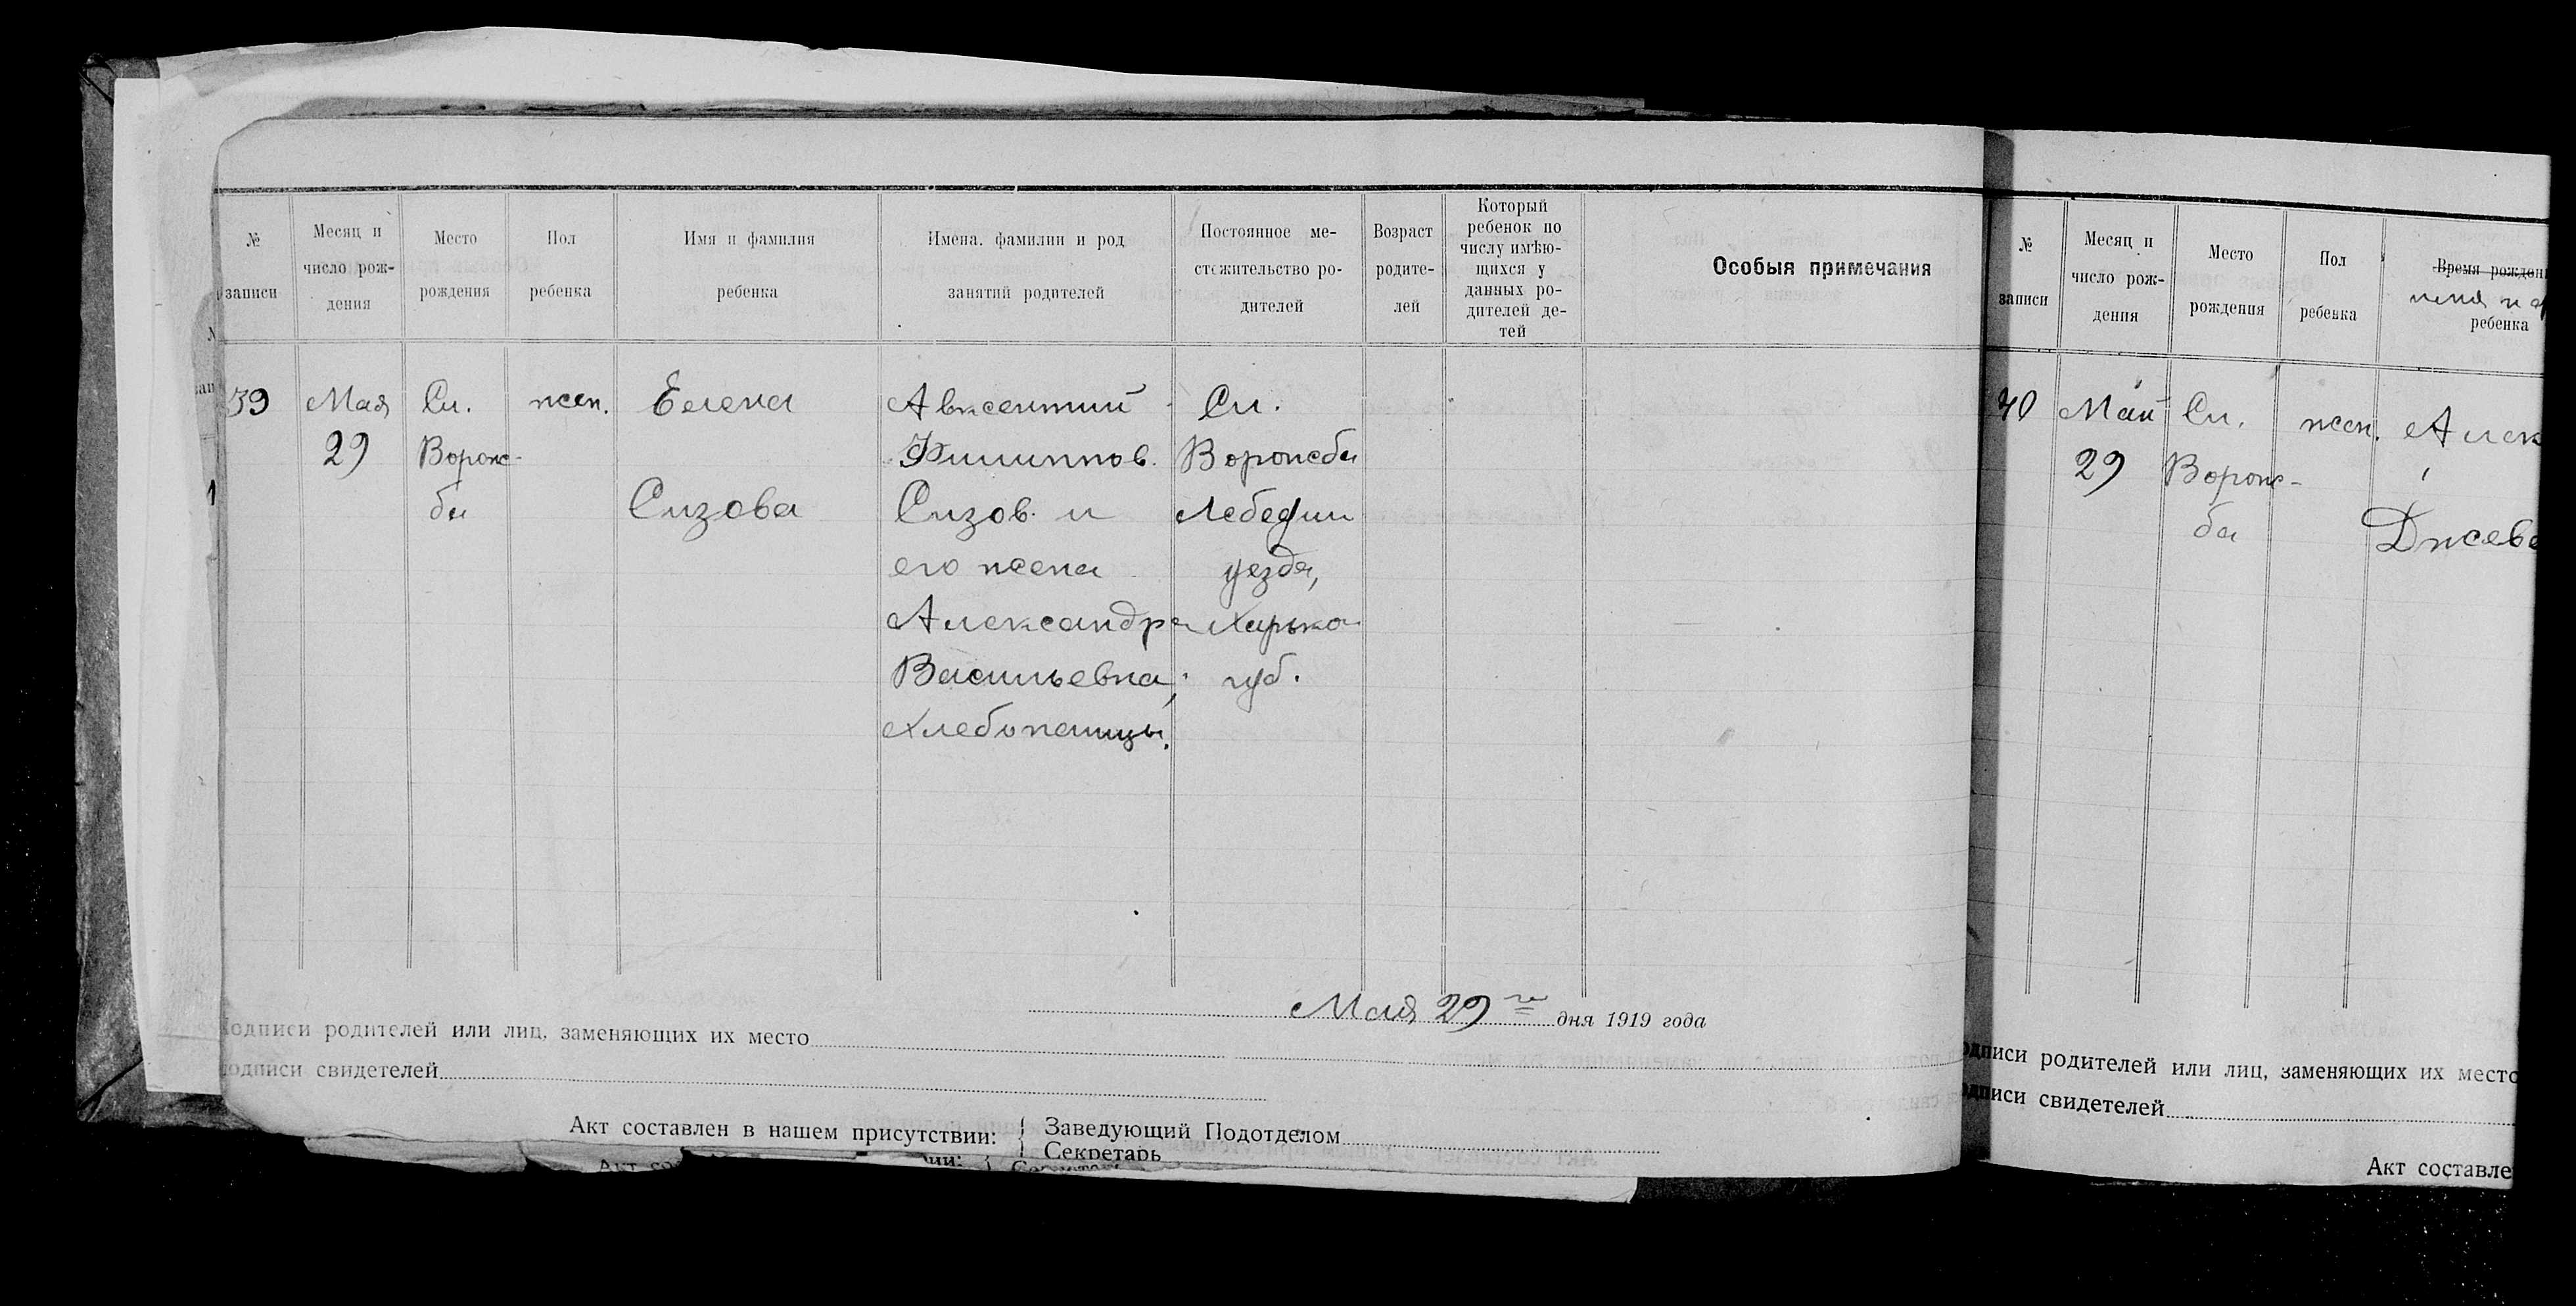 № записи
Месяц и число рождения
Место рождения
Пол ребенка
Имя и фамилия ребенка
Имена, фамилии и род занятий родителей
Постоянное местожительство родителей
Возраст родителей
Который ребенок по числу имѣющихся у данных родителей детей
Особыя примечания
39
Мая
29
Сл.
Ворож-
ба
жен.
Елена
Сизова
Авксентий
Филиппов.
Сизов. и
его жена
Александра
Васильевна,
хлебопашцы.
Сл.
Ворожба
Лебедин
уезда,
Харьков
губ.
Мая 29 го дня 1919 года
Подписи родителей или лиц, заменяющих их место
Подписи свидетелей
Акт составлен в нашем присутствии:
Заведующий Подотделом
Секретарь
№ записи
Месяц и число рождения
Место рождения
Пол ребенка
Время рождени
имя и ф
ребенка
40
Май
29
Сл.
Ворож-
ба
жен.
Алек
Джева
одписи родителей или лиц, заменяющих их место
одписи свидетелей
Акт составле